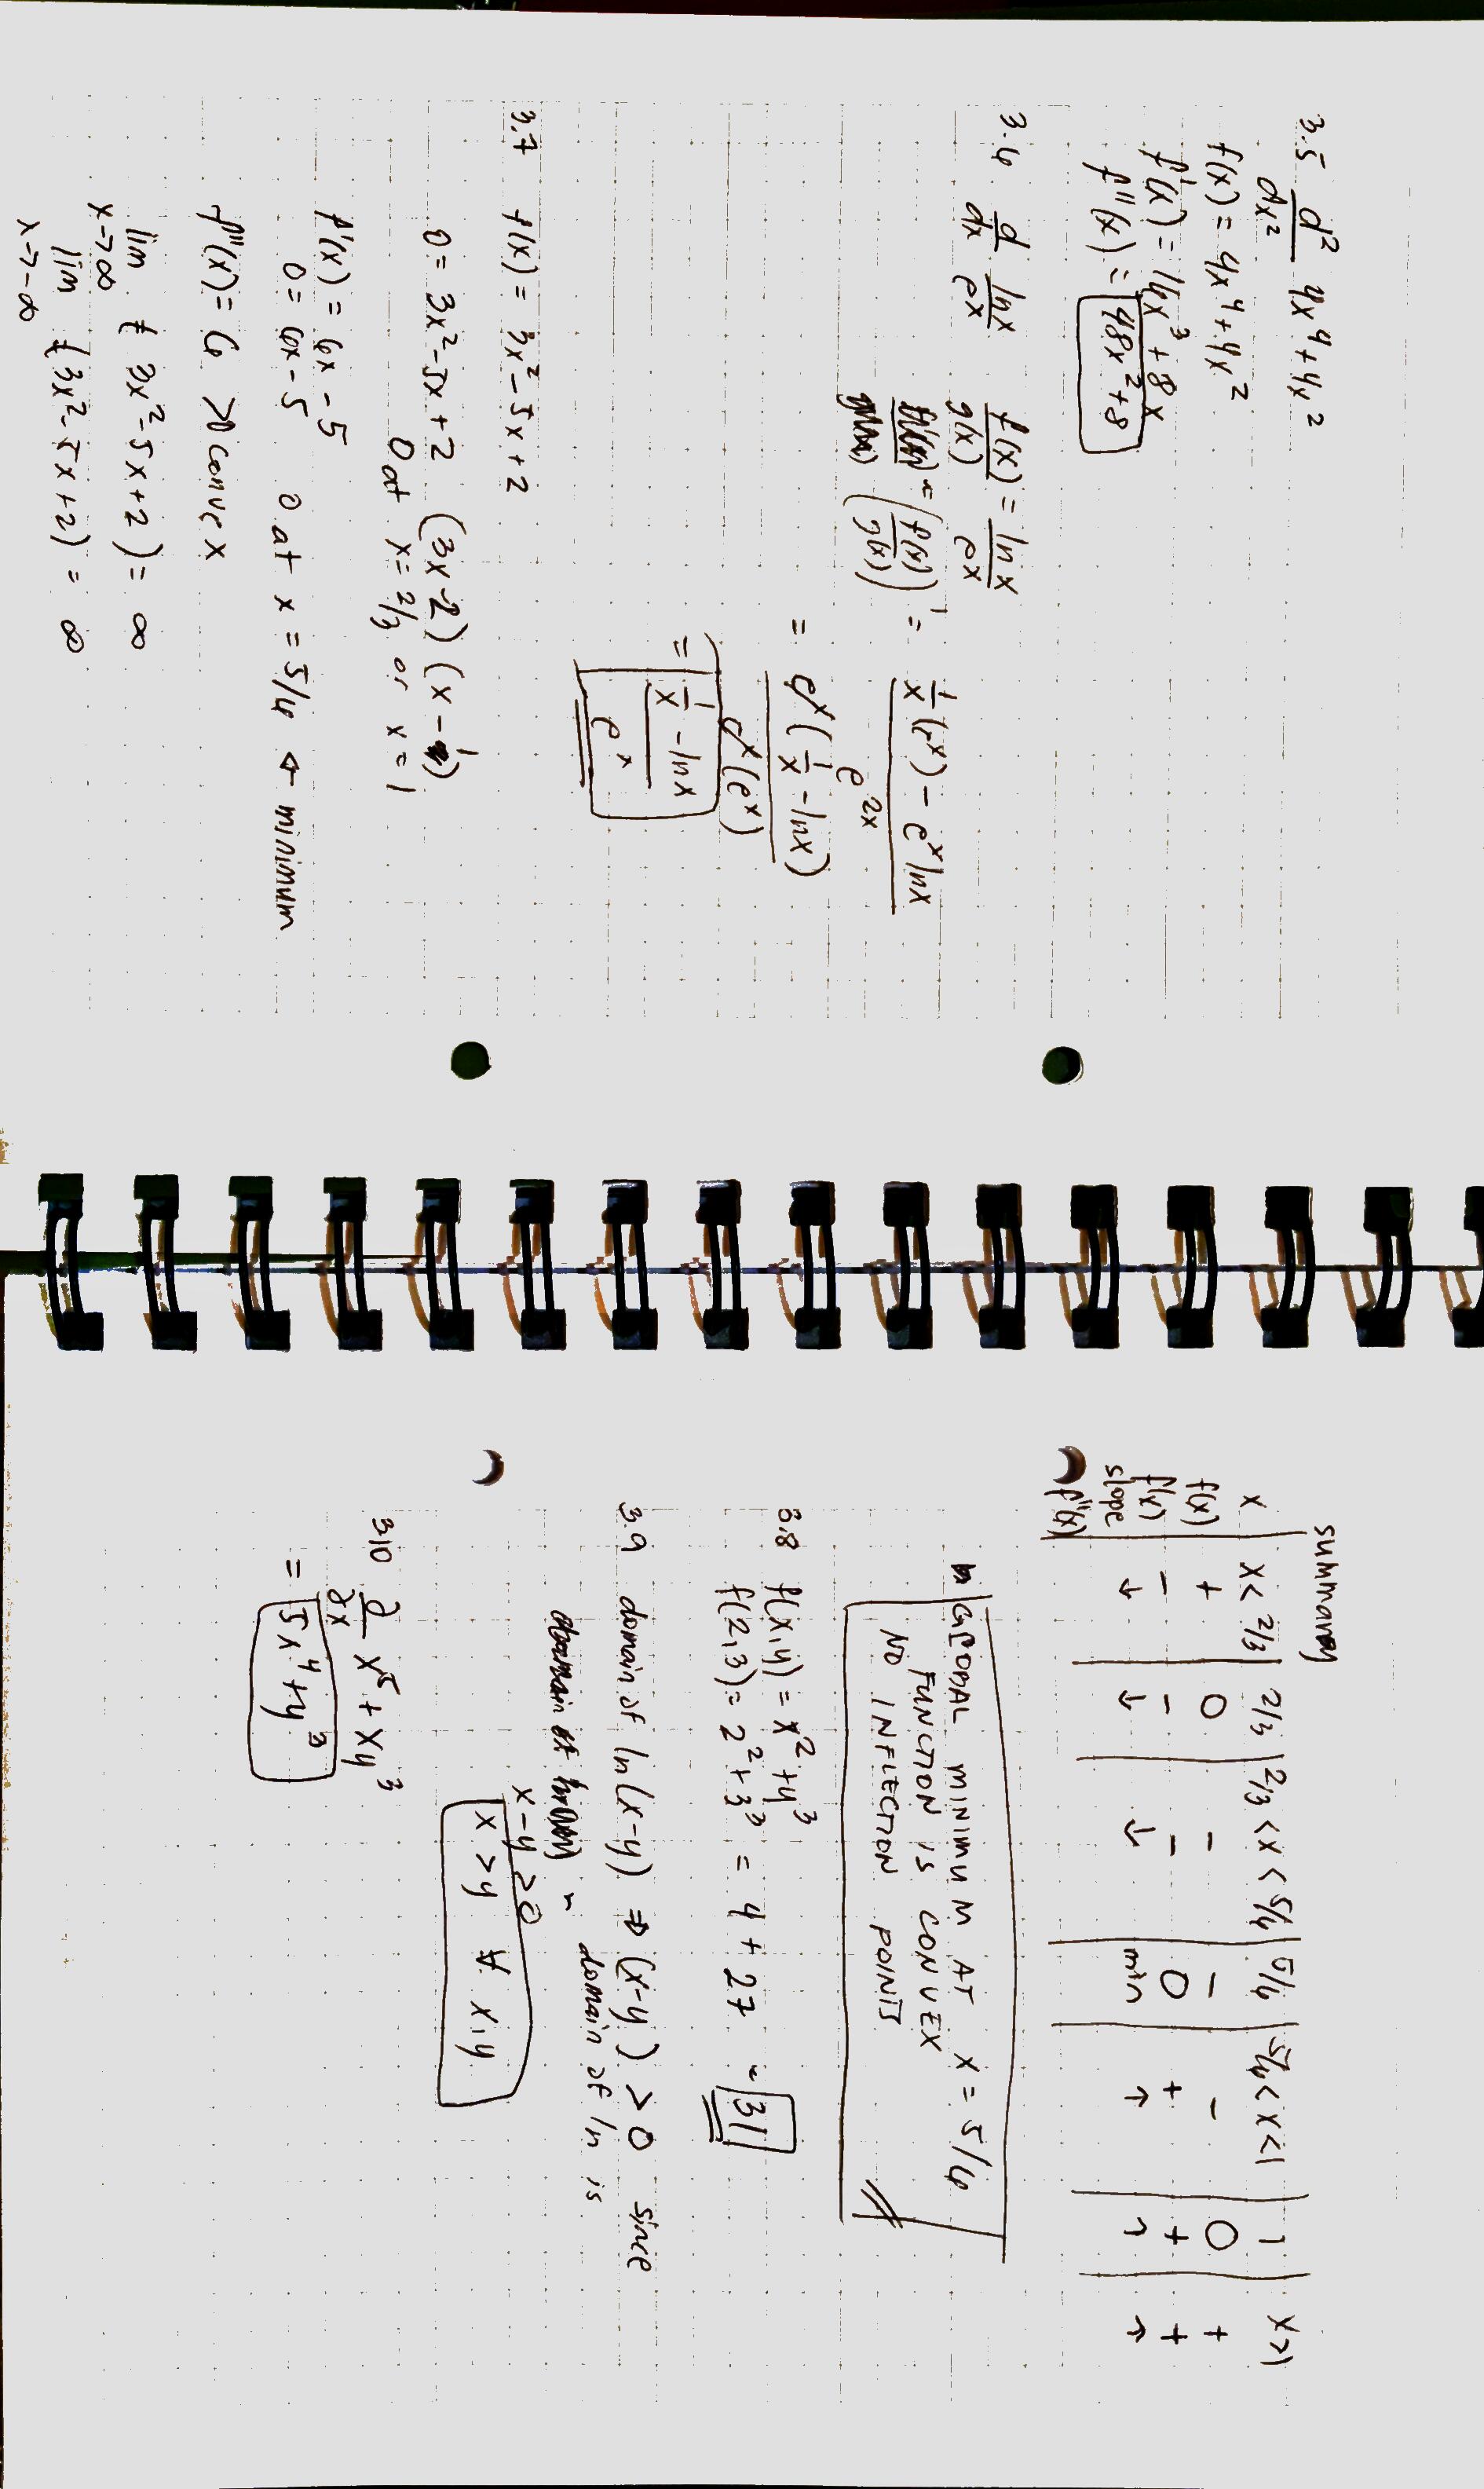 3.5 d²/dx² 4x⁴+4x²
f(x) = 4x⁴+4x²
f'(x) = 16x³+8x
f''(x) = 48x²+8
3.6 d/dx lnx/e^x f(x)/g(x) = lnx/e^x
(f(x)/g(x))' = (1/x(e^x) - e^x lnx)/e^2x
= e^x(1/x - lnx)/e^x(e^x)
= (1/x - lnx)/e^x
3.7 f(x) = 3x²-5x+2
0 = 3x²-5x+2 (3x-2)(x-1)
0 at x=2/3 or x=1
f'(x) = 6x-5
0 = 6x-5 0 at x = 5/6 ← minimum
f''(x) = 6 >0 convex
lim x→∞ (3x²-5x+2) = ∞
lim x→-∞ (3x²-5x+2) = ∞
summary
x | x<2/3 | 2/3 | 2/3<x<5/6 | 5/6 | 5/6<x<1 | 1 | x>1
f(x) | + | 0 | - | - | - | 0 | +
f'(x) | - | - | - | 0 | + | + | +
slope | ↓ | ↓ | ↓ | min | ↑ | ↑ | ↑
f''(x)
GLOBAL MINIMUM AT x = 5/6
FUNCTION IS CONVEX
NO INFLECTION POINTS
3.8 f(x,y) = x²+y³
f(2,3) = 2²+3³ = 4+27 = 31
3.9 domain of ln(x-y) ⇒ (x-y) > 0 since
domain of ln is
x-y>0
x>y ∀ x,y
3.10 ∂/∂x x⁵+xy³
= 5x⁴+y³